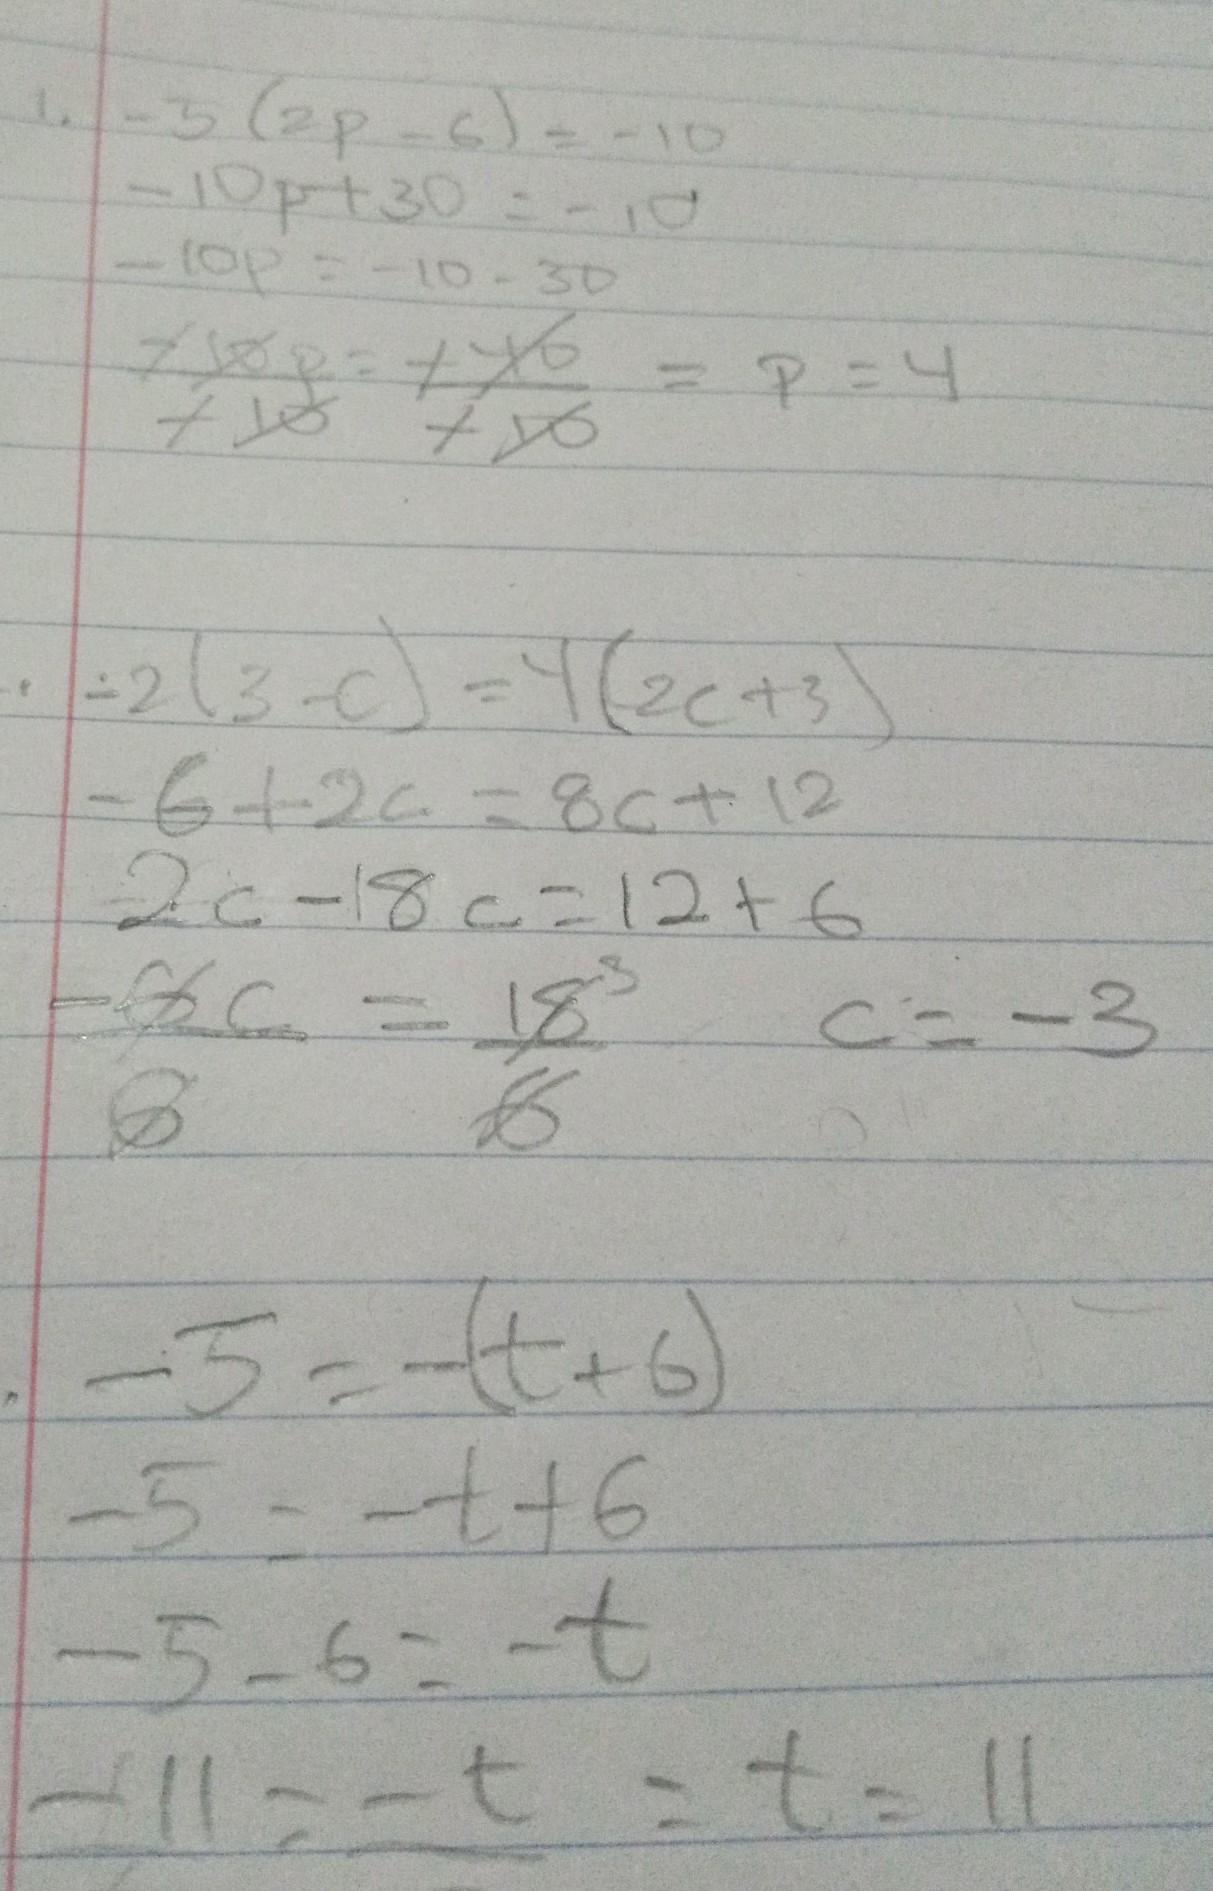 1. -5(2p-6) = -10
-10p+30 = -10
-10p = -10-30
-10p/-10 = -40/-10 = p = 4
. -2(3-c) = 4(2c+3)
-6+2c = 8c+12
2c-18c = 12+6
-6c/6 = 18³/6 c = -3
. -5 = -(t+6)
-5 = -t+6
-5-6 = -t
-11 = -t = t = 11